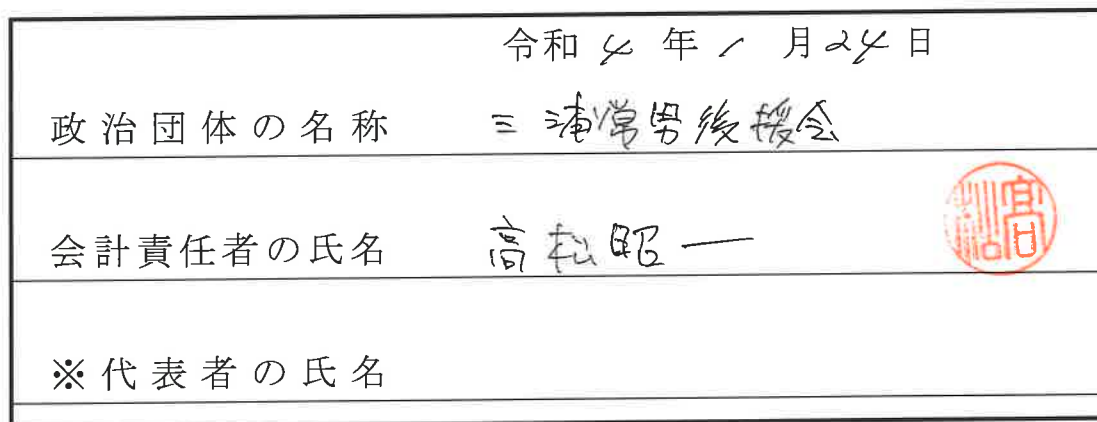 令和4年1月24日
政治団体の名称 三浦常男後援会
会計責任者の氏名 高松昭一
※代表者の氏名